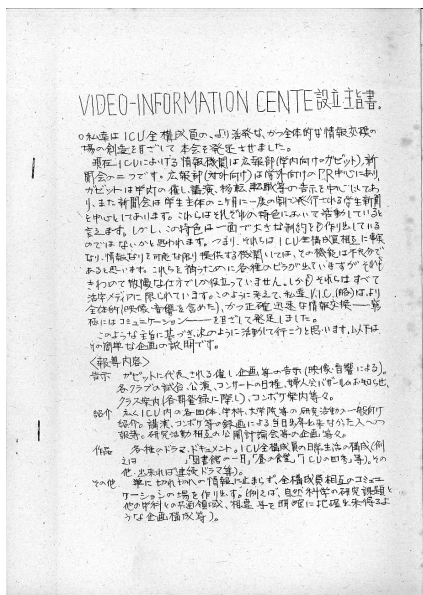 VIDEO-INFORMATION CENTE設立主旨書。
○私達はICU全構成員の、より活発な、かつ全体的な情報交換の
場の創造をめざして本会を発足させました。
現在ICUにおける情報機関は広報部(学内向けのガゼット)、新
聞会の二つです。広報部(対外向け)は学外向けのP.R中心にあり、
ガゼットは学内の催し、講演、移転、等の告示を中心としてお
り、また新聞会は学生主体の二ヶ月に一度の割で発行される学生新聞
を中心としております。これらはそれぞれの特色において活動していると
言えます。しかし、この特色は一面で大きな制約をも作り出している
のではないかと思われます。つまり、それらはICU全構成員相互に
なり、情報なりを可能な限り提供する機関としては、その機能は不充分で
あると思います。これらを補うために各種のビラが出ていますがそれも
きわめて散慢な仕方でしか役立っていません。しかもそれらはすべて
活字メディアに限られています。このように考えて、私達V.I.C.(略)は、より
全体的(映像・音響を含めた)、かつ正確迅速な情報交換――
極にはコミュニケーション――をめざして発足しました。
このような主旨に基づき、次のように活動して行こうと思います。以下は
その簡単な企画の説明です。
〈報算内容〉
告示 ガゼットに代表される催し・企画等の告示(映像・音響による)。
各クラブの試合、公演、コンサートの日程、婦人会バザーのお知らせ、
クラス案内(各期登録に際し)、コンボケ案内等々。
紹介 広くICU内の各団体、学科、大学院等の研究活動の一般向け
紹介。講演、コンボケ等の録画による当日出席出来なかった人への
報等。研究活動相互の公開討論会等の企画等々。
作品 各種のドラマ、ドキュメント。ICU全構成員の日常生活の構成(例
えば 「図書館の一日」「昼の食堂」「ICUの四季」等)。その
他、出来れば連続ドラマ等)。
その他 単に切れ切れの情報に止まらず、全構成員相互のコミュニ
ケーションの場を作り出す。(例えば、自然科学の研究課題と
他の学科との共通領域、相違等を明確に把握出来得るよ
うな企画構成等)。